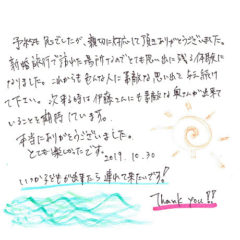 予約も急でしたが、親切に対応して頂きありがとうございました。
新婚旅行で訪れた場所なのでとても思い出に残る体験に
なりました。これからも色んな人に素敵な思い出を与え続け
て下さい。次来る時は伊藤さんにも素敵な奥さんが出来て
いることを期待しています。
本当にありがとうございました。
とても楽しかったです。
2019.10.30
いつか子どもが出来たら連れて来たいです!
Thank you!!